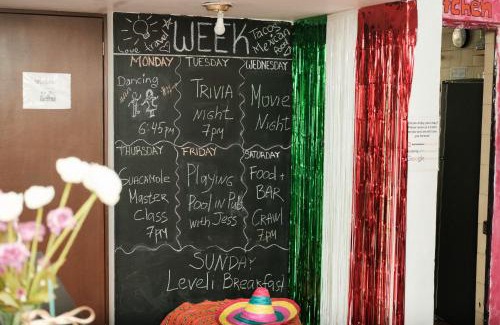 WEEK
Love travel
Tacos
Mexican
food
MONDAY
Dancing
6:45pm
TUESDAY
TRIVIA
night
7pm
WEDNESDAY
Movie
Night
THURSDAY
GUACAMOLE
Master
Class
7pm
FRIDAY
Playing
Pool in Pub
with Jess
SATURDAY
Food +
BAR
CRAWL
7pm
SUNDAY
Leveli Breakfast
kitchen